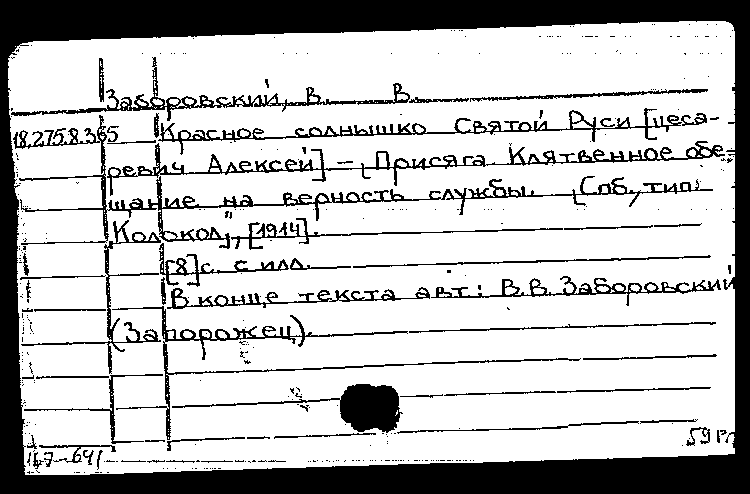 Заборовский, В. В.
18.275.8.365 Красное солнышко Святой Руси [цеса-
ревич Алексей] – [Присяга. Клятвенное обе-
щание на верность службы. [Спб., тип.
"Колокол", [1914].
[8]с. с илл.
В конце текста авт.: В.В. Заборовский
(Запорожец).
167-641